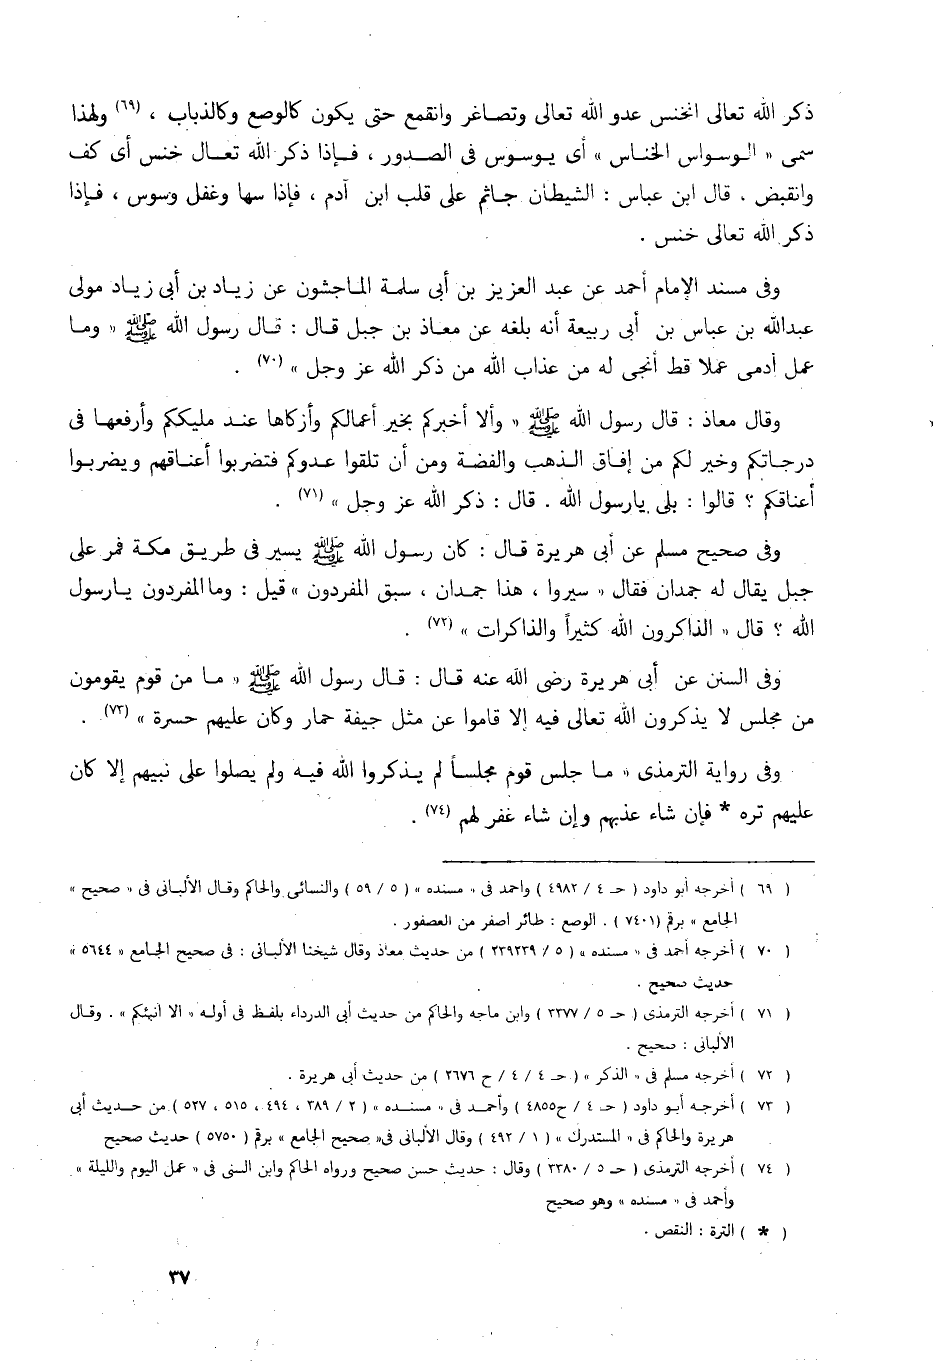 ذكر الله تعالى انخنس عدو الله تعالى وتصاغر وانقمع حتى يكون كالوصع وكالذباب ، (٦٩) ولهذا
سمى « الوسواس الخناس » أى يوسوس فى الصدور ، فإذا ذكر الله تعالى خنس أى كف
وانقبض . قال ابن عباس : الشيطان جاثم على قلب ابن آدم ، فإذا سها وغفل وسوس ، فإذا
ذكر الله تعالى خنس .
وفى مسند الإمام أحمد عن عبد العزيز بن أبى سلمة الماجشون عن زياد بن أبى زياد مولى
عبدالله بن عباس بن أبى ربيعة أنه بلغه عن معاذ بن جبل قال : قال رسول الله ﷺ « وما
عمل آدمى عملا قط أنجى له من عذاب الله من ذكر الله عز وجل » (٧٠) .
وقال معاذ : قال رسول الله ﷺ « وألا أخبركم بخير أعمالكم وأزكاها عند مليككم وأرفعها فى
درجاتكم وخير لكم من إفاق الذهب والفضة ومن أن تلقوا عدوكم فتضربوا أعناقهم ويضربوا
أعناقكم ؟ قالوا : بلى يارسول الله . قال : ذكر الله عز وجل » (٧١) .
وفى صحيح مسلم عن أبى هريرة قال : كان رسول الله ﷺ يسير فى طريق مكة فمر على
جبل يقال له جمدان فقال « سيروا ، هذا جمدان ، سبق المفردون » قيل : وما المفردون يارسول
الله ؟ قال « الذاكرون الله كثيراً والذاكرات » (٧٢) .
وفى السنن عن أبى هريرة رضى الله عنه قال : قال رسول الله ﷺ « ما من قوم يقومون
من مجلس لا يذكرون الله تعالى فيه إلا قاموا عن مثل جيفة حمار وكان عليهم حسرة » (٧٣) .
وفى رواية الترمذى « ما جلس قوم مجلساً لم يذكروا الله فيه ولم يصلوا على نبيهم إلا كان
عليهم تره * فإن شاء عذبهم وإن شاء غفر لهم (٧٤) .
( ٦٩ ) أخرجه أبو داود ( حـ ٤ / ٤٩٨٢ ) واحمد فى « مسنده » ( ٥ / ٥٩ ) والنسائى والحاكم وقال الألبانى فى « صحيح »
الجامع » برقم (٧٤٠١ ) . الوصع : طائر أصفر من العصفور .
( ٧٠ ) أخرجه أحمد فى « مسنده » ( ٥ / ٢٣٩٢٣٩ ) من حديث معاذ وقال شيخنا الألبانى : فى صحيح الجامع « ٥٦٤٤ »
حديث صحيح .
( ٧١ ) أخرجه الترمذى ( حـ ٥ / ٣٣٧٧ ) وابن ماجه والحاكم من حديث أبى الدرداء بلفظ فى أوله « الا أنبئكم » . وقال
الألبانى : صحيح .
( ٧٢ ) أخرجه مسلم فى « الذكر » ( حـ ٤ / ٤ / ح ٢٦٧٦ ) من حديث أبى هريرة .
( ٧٣ ) أخرجه أبو داود ( حـ ٤ / ح٤٨٥٥ ) وأحمد فى « مسنده » ( ٢ / ٣٨٩ ، ٤٩٤ ، ٥١٥ ، ٥٢٧ ) من حديث أبى
هريرة والحاكم فى « المستدرك » ( ١ / ٤٩٢ ) وقال الألبانى فى« صحيح الجامع » برقم ( ٥٧٥٠ ) حديث صحيح
( ٧٤ ) أخرجه الترمذى ( حـ ٥ / ٣٣٨٠ ) وقال : حديث حسن صحيح ورواه الحاكم وابن السنى فى « عمل اليوم والليلة » .
وأحمد فى « مسنده » وهو صحيح
( * ) الترة : النقص .
٣٧